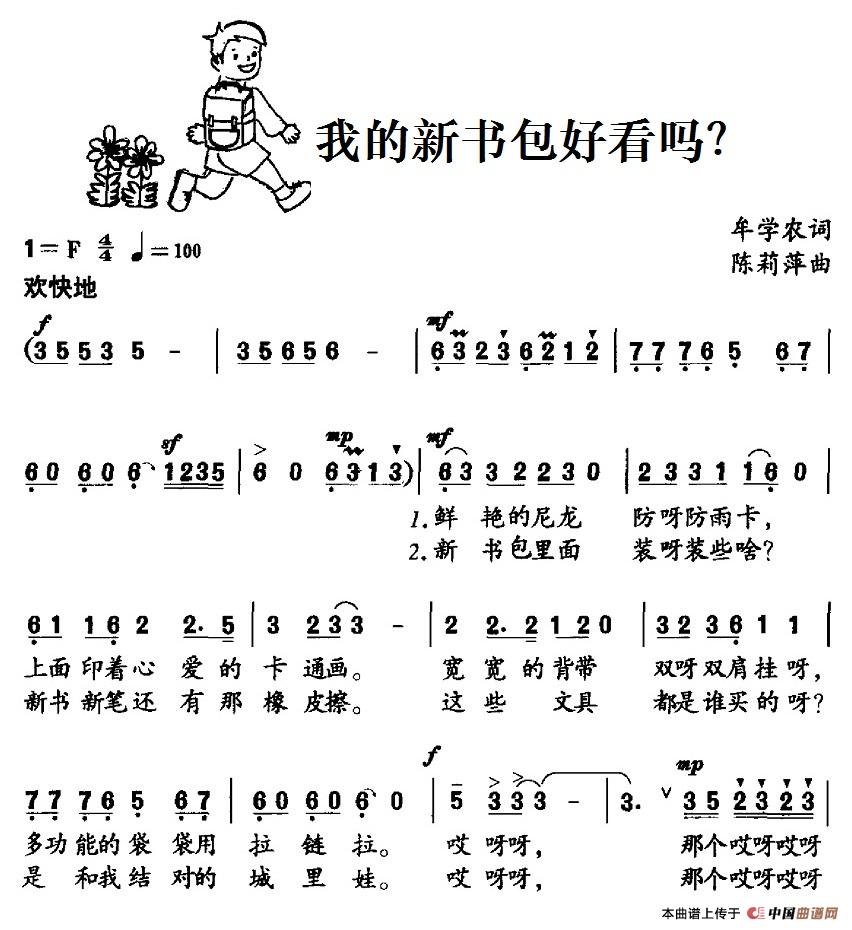 我的新书包好看吗？
牟学农词
1=F 4/4 ♩=100
陈莉萍曲
欢快地
f mf
(3 5 5 3 5 - | 3 5 6 5 6 - | 6 3 2 3 6 2 1 2 | 7 7 7 6 5 6 7 |
sf mp mf
6 0 6 0 6 1 2 3 5 | 6 0 6 3 1 3) | 6 3 3 2 2 3 0 | 2 3 3 1 1 6 0 |
1.鲜 艳的尼龙 防呀防雨卡，
2.新 书包里面 装呀装些啥？
6 1 1 6 2 2. 5 | 3 2 3 3 - | 2 2. 2 1 2 0 | 3 2 3 6 1 1 |
上面 印着心 爱 的 卡 通画。 宽 宽的背带 双呀双肩挂呀，
新书 新笔还 有 那 橡 皮擦。 这 些 文具 都是谁买的呀？
f mp
7 7 7 6 5 6 7 | 6 0 6 0 6 0 | 5 3 3 3 - | 3. ∨ 3 5 2 3 2 3 |
多功 能的 袋 袋用 拉 链 拉。 哎 呀呀， 那个哎呀哎呀
是 和我 结 对的 城 里 娃。 哎 呀呀， 那个哎呀哎呀
本曲谱上传于 中国曲谱网